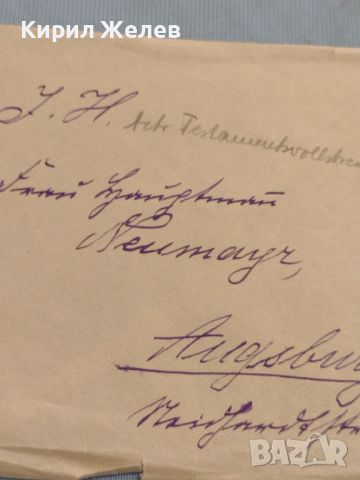 Кирил Желев
I. H. betr. Testamentsvollstrec
Frau Hauptmann
Neumayr,
Augsburg
Neidhardtstr
BAZAR
bg